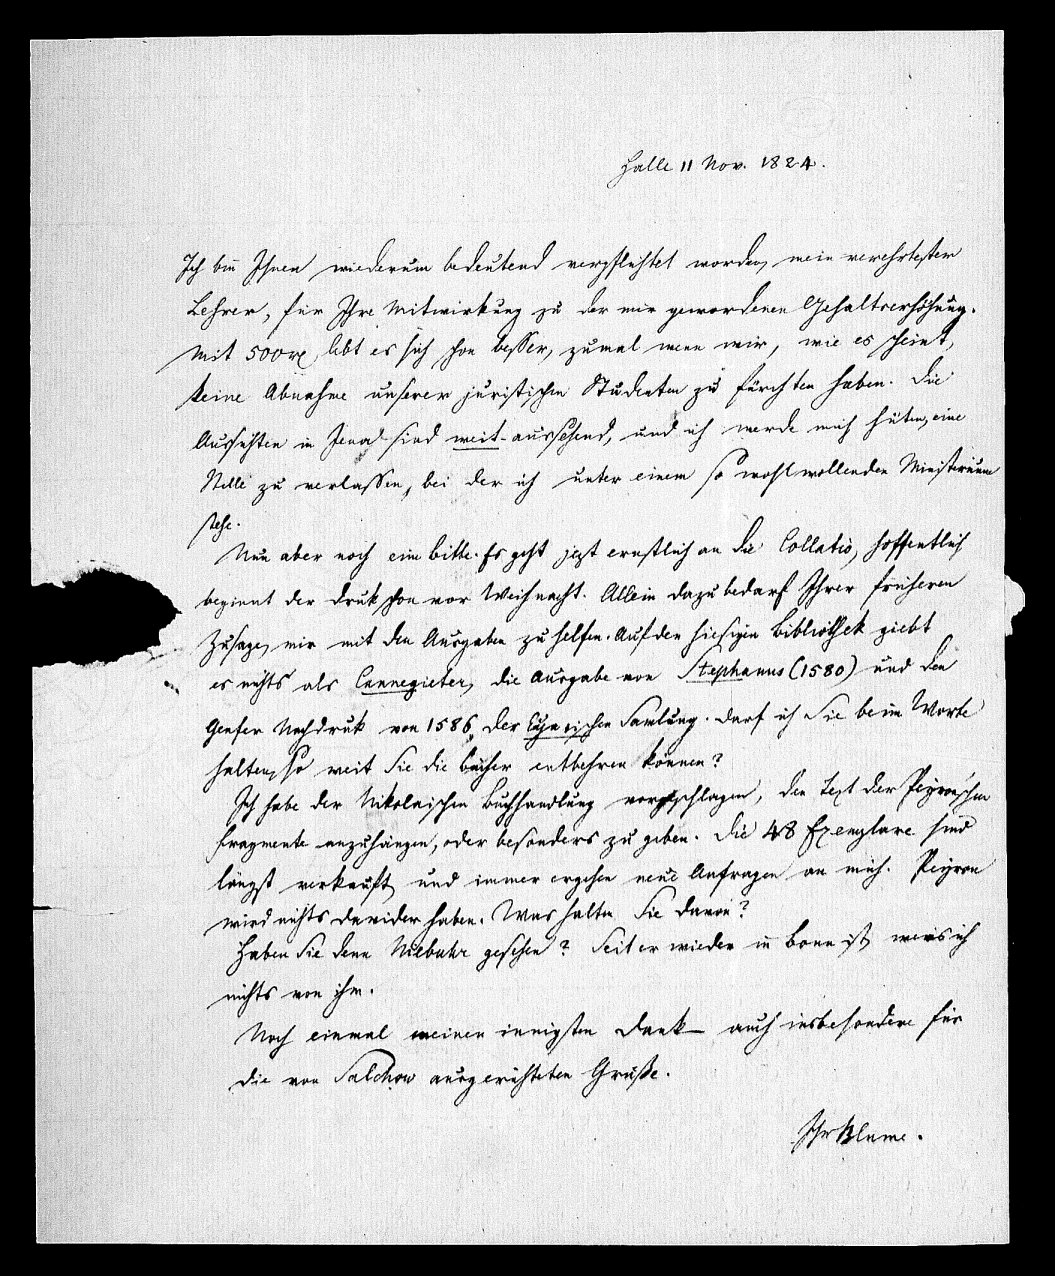 Halle 11 Nov. 1824.
Ich bin Ihnen wiederum bedeutend verpflichtet worden, mein verehrtester
Lehrer, für Ihre Mitwirkung zu der mir gewordenen Gehaltserhöhung.
Mit 500 rℓ lebt es sich schon besser, zumal wenn wir, wie es scheint,
keine Abnahme unserer juristischen Studenten zu fürchten haben. Die
Aussichten in Jena sind weit-aussehend, und ich werde mich hüten, eine
Stelle zu verlassen, bei der ich unter einem so wohlwollenden Ministerium
stehe.
Nun aber noch eine Bitte. Es geht jezt ernstlich an die Collatio, hoffentlich
beginnt der Druk schon vor Weihnacht. Allein dazu bedarf Ihrer früheren
Zusage, mir mit den Ausgaben zu helfen. Auf der hiesigen Bibliothek giebt
es nichts als Cannegieter, die Ausgabe von Stephanus (1580) und den
Genfer Nachdruk von 1586, der Cujacischen Samlung. Darf ich Sie beim Worte
halten, so weit Sie die Bücher entbehren können?
Ich habe der Nikolaischen Buchhandlung vorgeschlagen, den Text der Peyronschen
Fragmente anzuhängen, oder besonders zu geben. Die 48 Exemplare sind
längst verkauft, und immer ergehen neue Anfragen an mich. Peyron
wird nichts dawider haben. Was halten Sie davon?
Haben Sie denn Niebuhr gesehen? Seit er wieder in Bonn ist, weis ich
nichts von ihm.
Noch einmal meinen innigsten Dank – auch insbesondere für
die von Salchow ausgerichteten Grüße.
Ihr Blume.